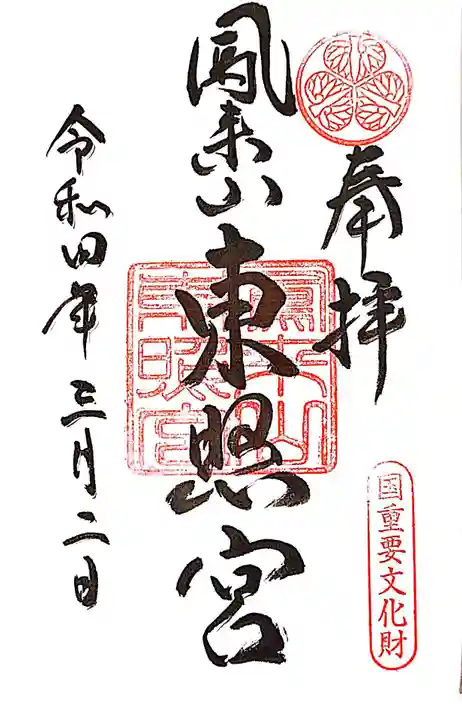 奉拝
国重要文化財
鳳来山東照宮
鳳来山東照宮
令和四年三月二日